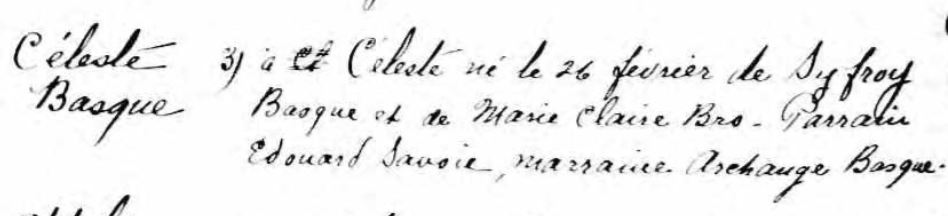 Céleste 3) à Céleste né le 26 février de Syfroy
Basque Basque et de Marie Claire Bro. Parrain
Edouard Savoie, marraine Archange Basque.